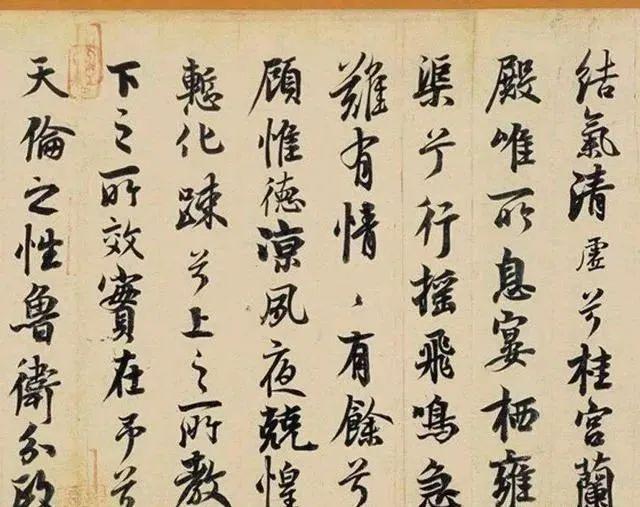 結氣清虛兮桂宮蘭
殿唯所息宴栖雍
渠兮行摇飛鳴急
難有情〻有餘兮
顧惟德涼夙夜兢惶
慙化踈兮上之所教
下之所效實在予兮
天倫之性魯衛分政